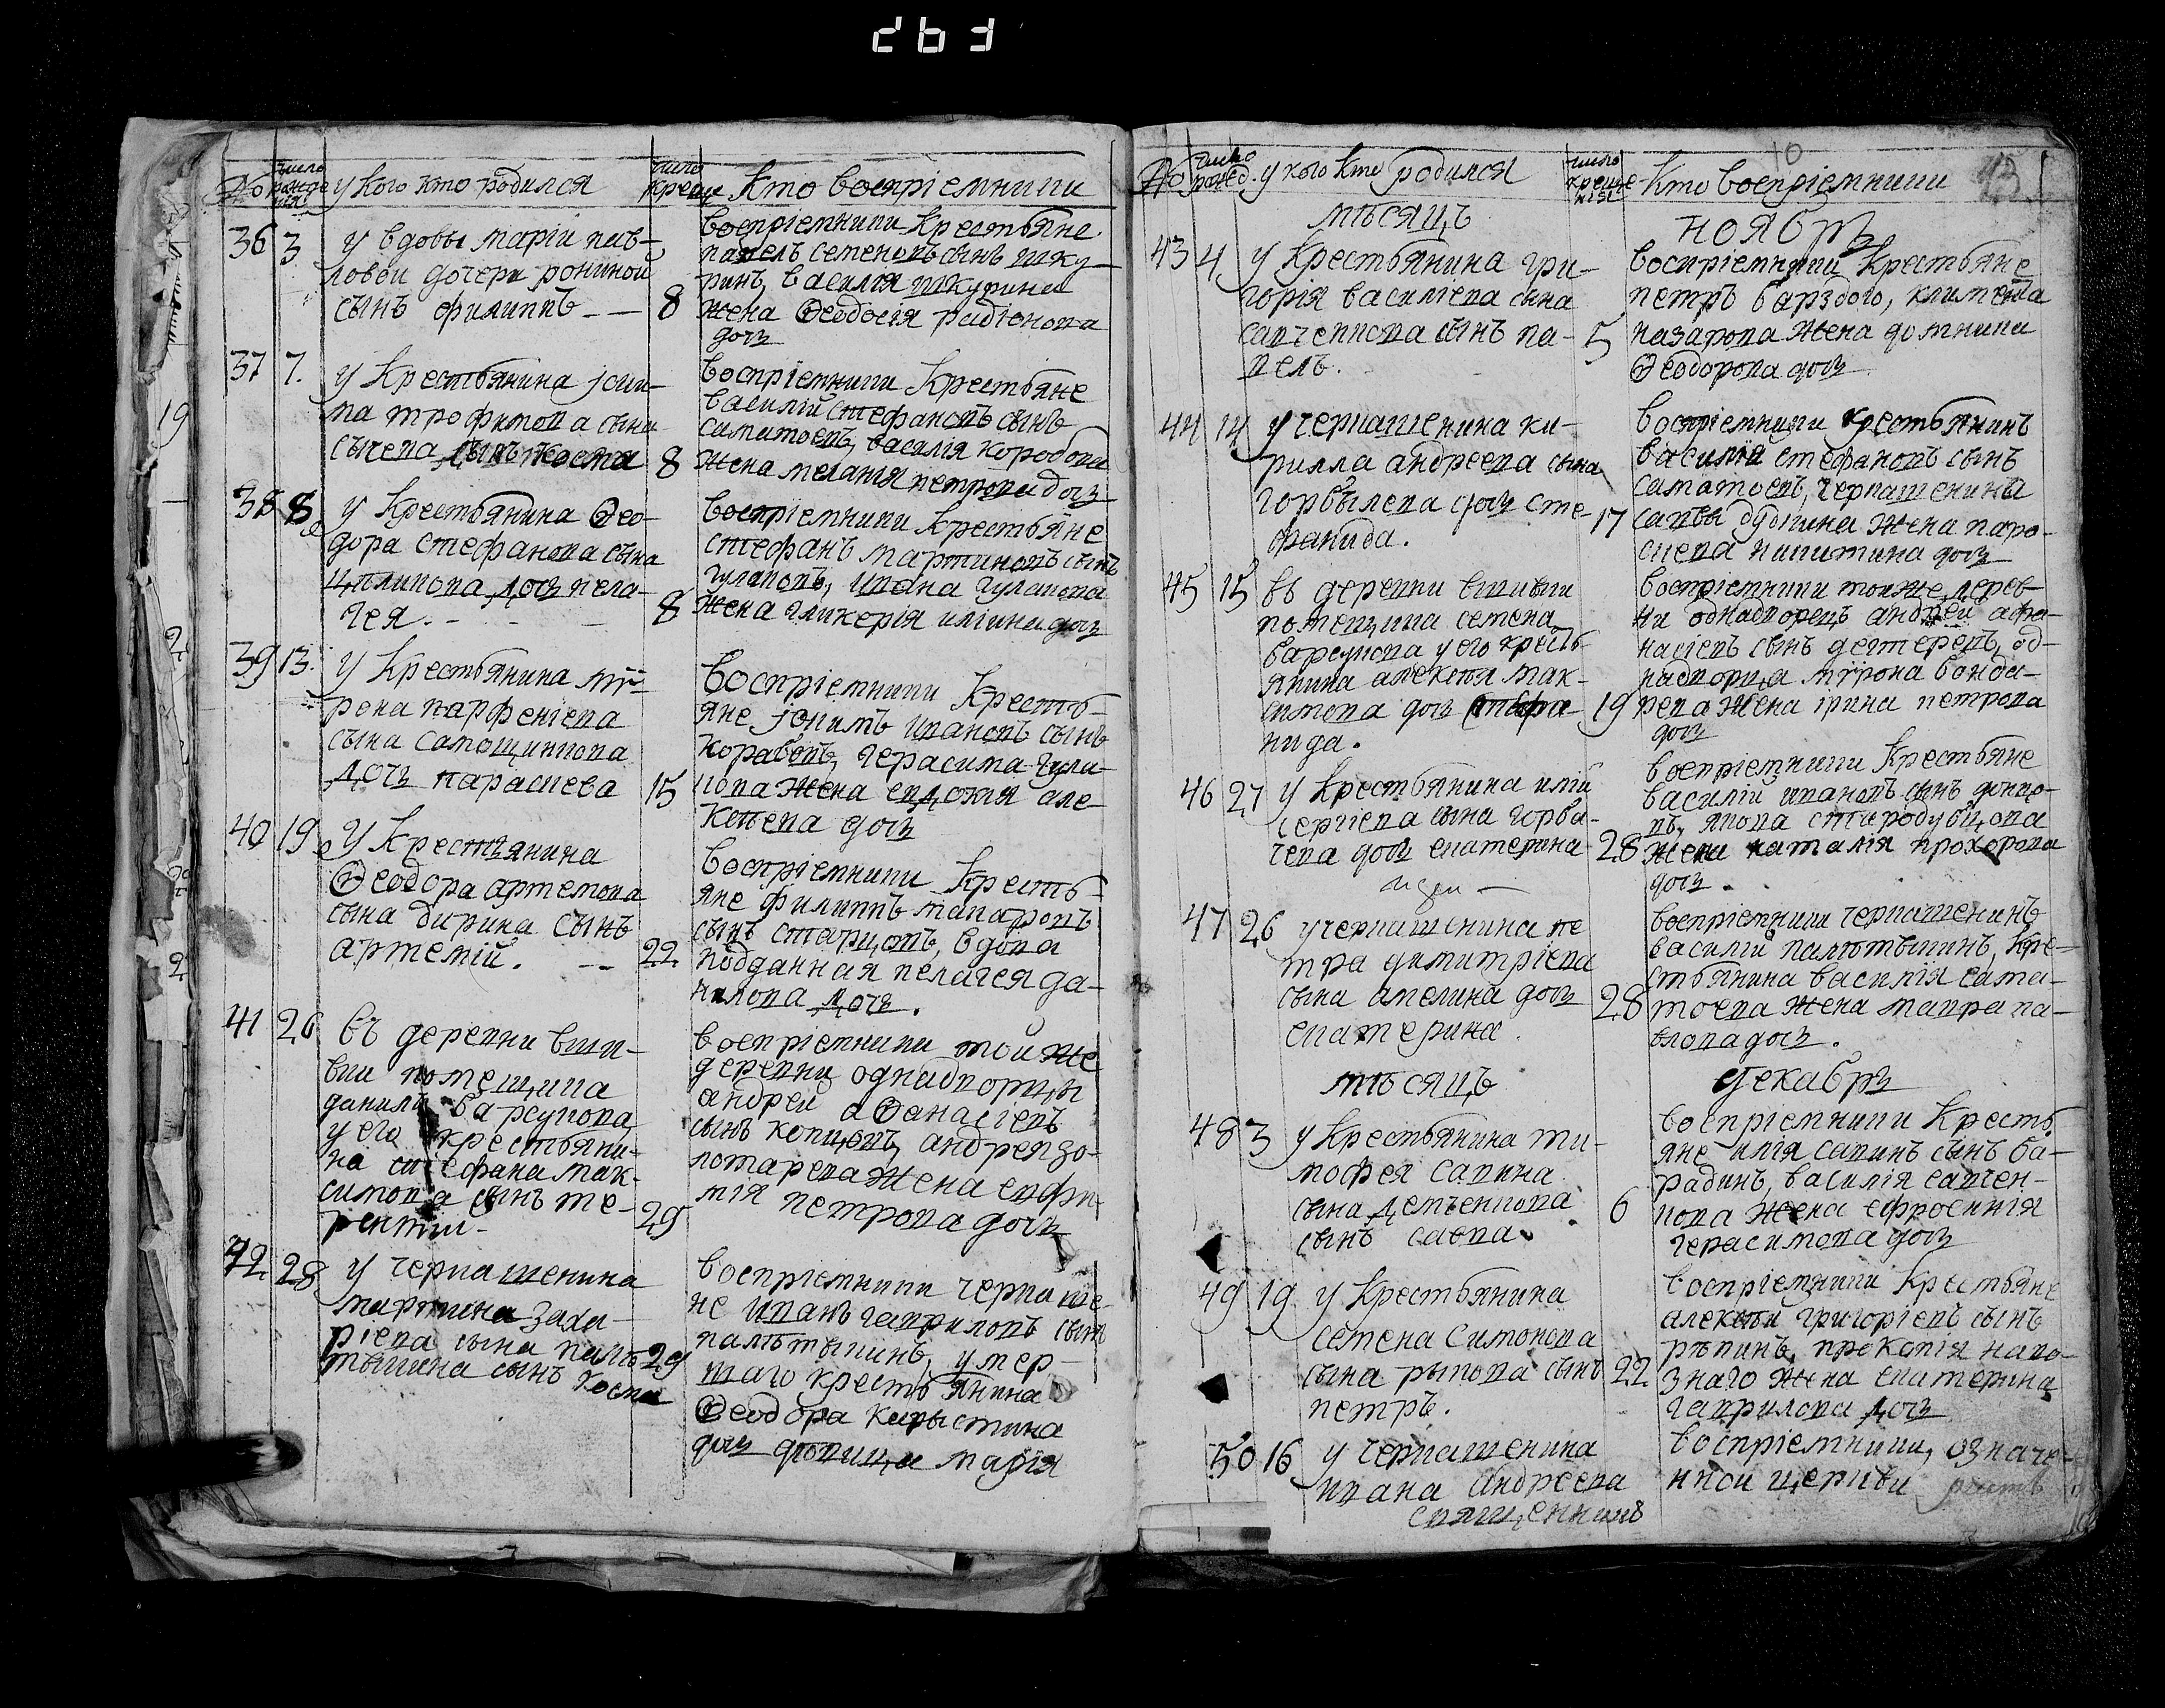 263
No число рожде нія у кого кто родился число креще Кто воспріемники
36 3 у вдовы маріи пав-
ловои дочери рониной
сынъ филиппъ - — 8
воспріемники Крестьяне
павелъ семеновъ сынъ шку-
ринъ, василія шкурина
жена Ѳеодосія радіонова
дочь
37 7. у Крестьянина
на трофимова сына
сычева сынъ Косма 8
воспріемники Крестьяне
василій стефановъ сынъ
саматоевъ, василія коробова
жена меланія петрова дочь
38 8 у Крестьянина Ѳео-
дора стефанова сына
цпликова дочь пела-
гея. - - - 8
воспріемники Крестьяне
стефанъ мартиновъ сынъ
гулаковъ, ивана гулакова
жена гликерія иліина дочь
39 13. у Крестьянина мѵ-
рона парфеніева
сына самощинкова
дочь параскева 15
Воспріемники Кресть-
яне іоакимъ ивановъ сынъ
Коравевъ, герасима гула-
кова жена евдокия але-
Ксѣева дочь
40 19 У Крестьянина
Ѳеодора артемова
сына дирина сынъ
артемій. -- 22
Воспріемники Кресть-
яне филиппъ макаровъ
сынъ старцовъ, вдова
подданная пелагея да-
нилова дочь.
41 26 въ деревни вши-
вки помещика
данилы барсукова
у его крестьяни-
на стефана мак-
симова сынъ те-
рентии - 29
воспріемники той же
деревни однадворцы
андрей аѲанасіевъ
сынъ копцевъ, андрея зо-
лотарева жена евфи-
мія петрова дочь
42 28 у черкашенина
мартина заха-
ріева сына палю-
тыкина сынъ косма 29
воспріемники черкаше-
не иванъ гавриловъ сынъ
палютыкинъ, умер-
шаго крестьянина
Ѳеодора карыстина
дочь девица марія
No число рожд. у кого кто родился число креще нія Кто воспріемники
10
13
мѣсяцъ ноябрь
43 4 у Крестьянина гри-
горія василіева сына
савченкова сынъ па-
велъ. 5
воспріемники Крестьяне
петръ барздого, климента
назарова жена домника
Ѳеодорова дочь
44 14 у черкашенина ки-
рилла андреева сына
горбылева дочь сте-
фанида. 17
воспріемники крестьянинъ
василій стефановъ сынъ
саматоевъ, черкашенина
савы дудкина жена паро-
скева никитина дочь
45 15 въ деревни вшивки
помещика семена
барсукова у его кресть-
янина алексея мак-
симова дочь стефа-
нида. 19
воспріемники тоиже дерев-
ни однадворецъ андрей афа-
насіевъ сынъ дегтеревъ, од-
надворца мѵрона бонда-
рева жена ірина петрова
дочь
46 27 у Крестьянина иліи
сергіева сына горба-
чева дочь екатерина 28
воспріемники Крестьяне
василій ивановъ сынъ
якова стародубцова
жена наталія прохорова
дочь.
47 26 у черкашенина пе
тра димитріева
сына амелина дочь
екатерина. 28
воспріемники черкашенинъ
василій палютыкинъ, кре-
стьянина василія сама-
тоева жена мавра па-
влова дочь.
мѣсяцъ декабрь
48 3 у Крестьянина ти-
мофея савина
сына демченкова
сынъ савва. 6
воспріемники Кресть
яне илія савинъ сынъ ба-
радинъ, василія савчен-
кова жена ефросинія
герасимова дочь
49 19 у Крестьянина
семена Симонова
сына рыкова сынъ 22
петръ.
воспріемники Крестьяне
алексей григоріевъ сынъ
рѣпинъ, прокопія нало-
знаго жена екатерина
гаврилова дочь
50 16 у черкашенина
ивана андреева
воспріемники, означе-
нной церкви
священникъ